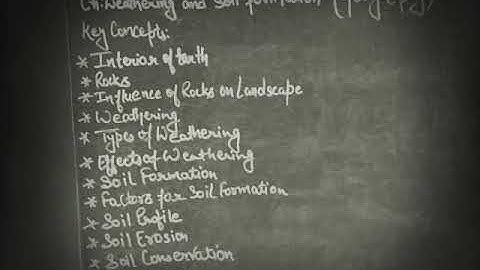 Ch: Weathering and Soil Formation
Key Concepts:
* Interior of Earth
* Rocks
* Influence of Rocks on Landscape
* Weathering
* Types of Weathering
* Effects of Weathering
* Soil Formation
* Factors for Soil Formation
* Soil Profile
* Soil Erosion
* Soil Conservation